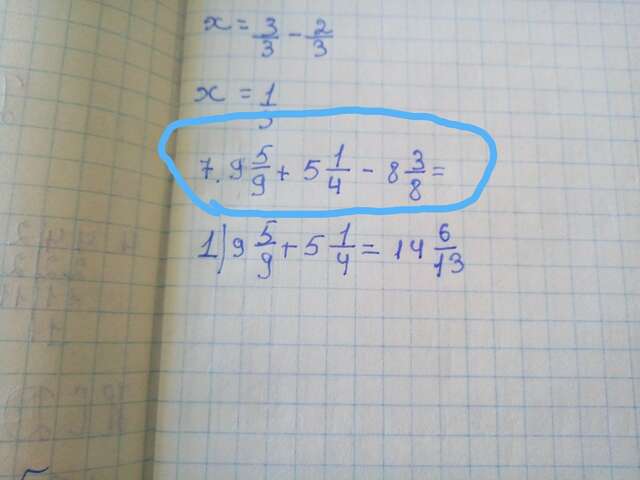 x = 3/3 - 2/3
x = 1/3
7. 9 5/9 + 5 1/4 - 8 3/8 =
1) 9 5/9 + 5 1/4 = 14 6/13